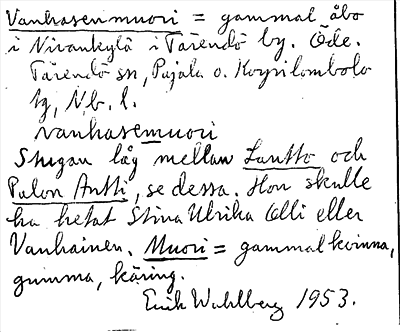 Vanhasenmuori = gammal åbo
i Nivankylä i Tärendö by. Öde.
Tärendö sn, Pajala o. Korpilombolo
tg, Nb. l.
vanhasemuori
Stugan låg mellan Lantto och
Palon Antti, se dessa. Hon skulle
ha hetat Stina Ulrika Olli eller
Vanhainen. Muori = gammal kvinna,
gumma, käring.
Erik Wahlberg 1953.